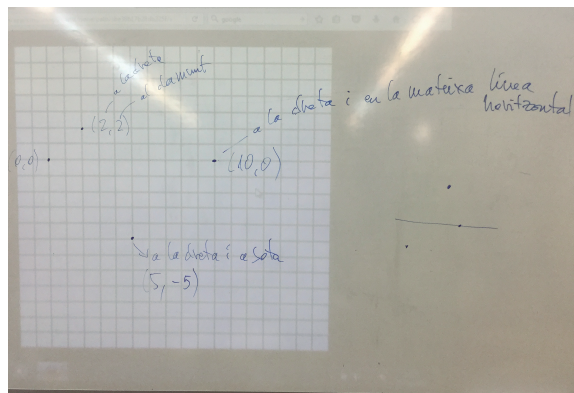 a la dreta
al damunt
(2,2)
(0,0)
a la dreta i en la mateixa línea
horitzontal
(10,0)
a la dreta i a sota
(5,-5)
google